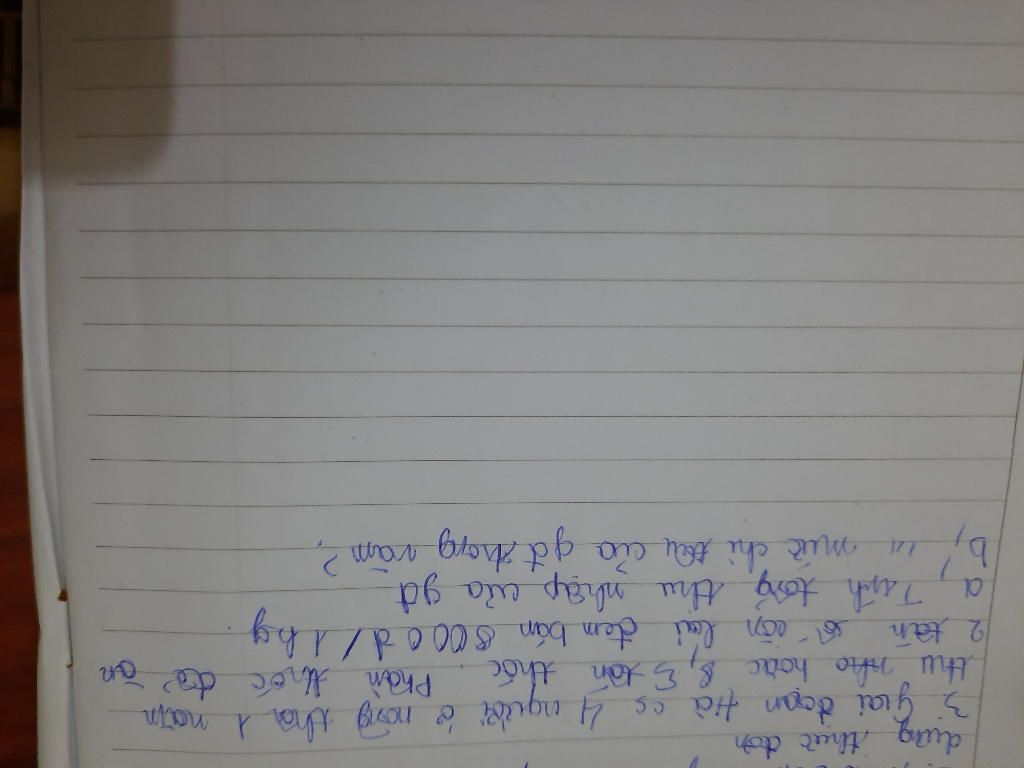 dựng thực đơn
3, Giai đoạn Hà có 4 người ở nông thôn 1 năm
thu hoạch 8,5 tấn thóc. Phần thóc để ăn
2 tấn số còn lại đem bán 8000đ/1kg.
a, Tính tổng thu nhập của gđ
b, " mức chi tiêu của gđ trong năm?